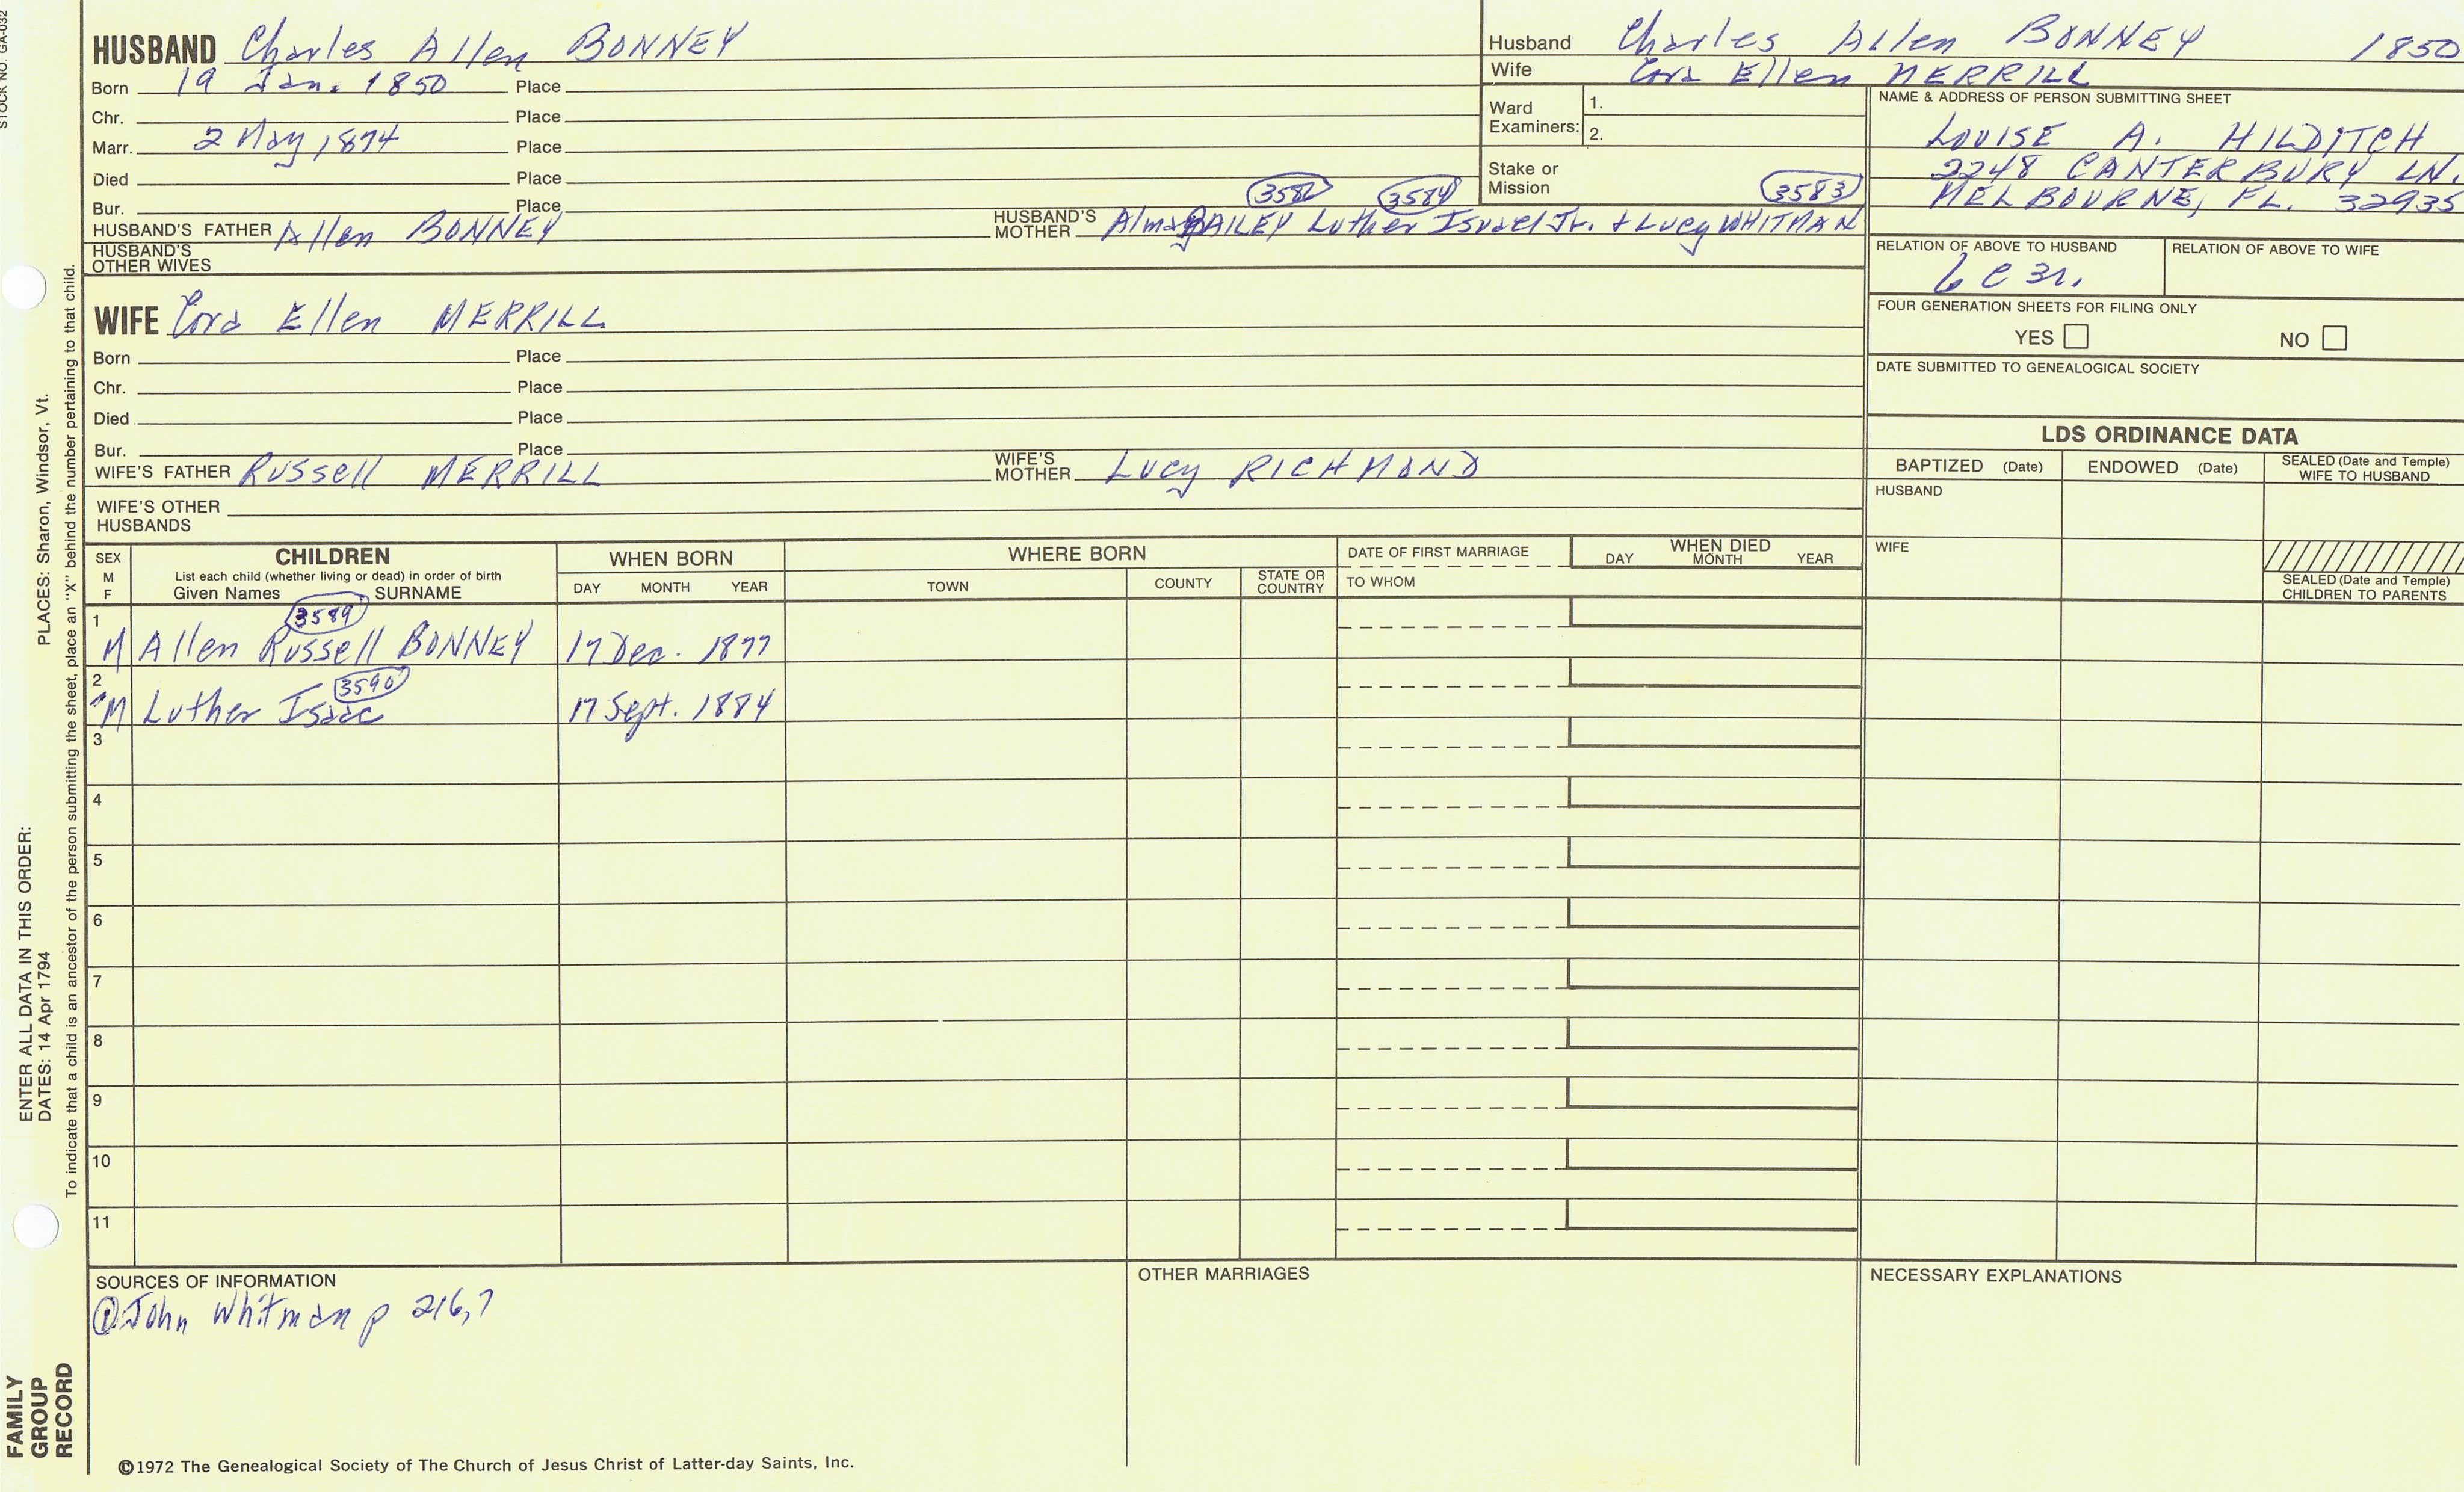 STOCK NO. GA-032
HUSBAND Charles Allen BONNEY
Born 19 Jan. 1850 Place
Chr. Place
Marr. 2 May 1874 Place
Died Place
Bur. Place
HUSBAND'S FATHER Allen BONNEY
3582 3584 3583
HUSBAND'S MOTHER Alma BAILEY Luther Israel Jr. + Lucy WHITMAN
HUSBAND'S OTHER WIVES
WIFE Cora Ellen MERRILL
Born Place
Chr. Place
Died Place
Bur. Place
WIFE'S FATHER Russell MERRILL
WIFE'S MOTHER Lucy RICHMOND
WIFE'S OTHER HUSBANDS
Husband Charles Allen BONNEY 1850
Wife Cora Ellen MERRILL
Ward Examiners: 1.
2.
Stake or Mission
NAME & ADDRESS OF PERSON SUBMITTING SHEET
LOUISE A. HILDITCH
2248 CANTERBURY LN.
MELBOURNE, FL. 32935
RELATION OF ABOVE TO HUSBAND RELATION OF ABOVE TO WIFE
6 C 3r.
FOUR GENERATION SHEETS FOR FILING ONLY
YES NO
DATE SUBMITTED TO GENEALOGICAL SOCIETY
LDS ORDINANCE DATA
BAPTIZED (Date) ENDOWED (Date) SEALED (Date and Temple) WIFE TO HUSBAND
HUSBAND
WIFE
SEALED (Date and Temple) CHILDREN TO PARENTS
SEX M F
CHILDREN
List each child (whether living or dead) in order of birth
Given Names SURNAME
WHEN BORN
DAY MONTH YEAR
WHERE BORN
TOWN COUNTY STATE OR COUNTRY
DATE OF FIRST MARRIAGE
TO WHOM
WHEN DIED
DAY MONTH YEAR
3589
1 M Allen Russell BONNEY 17 Dec. 1877
3590
2 M Luther Isaac 17 Sept. 1884
3
4
5
6
7
8
9
10
11
SOURCES OF INFORMATION
① John Whitman p 216,7
OTHER MARRIAGES
NECESSARY EXPLANATIONS
©1972 The Genealogical Society of The Church of Jesus Christ of Latter-day Saints, Inc.
FAMILY GROUP RECORD
ENTER ALL DATA IN THIS ORDER:
DATES: 14 Apr 1794 PLACES: Sharon, Windsor, Vt.
To indicate that a child is an ancestor of the person submitting the sheet, place an "X" behind the number pertaining to that child.